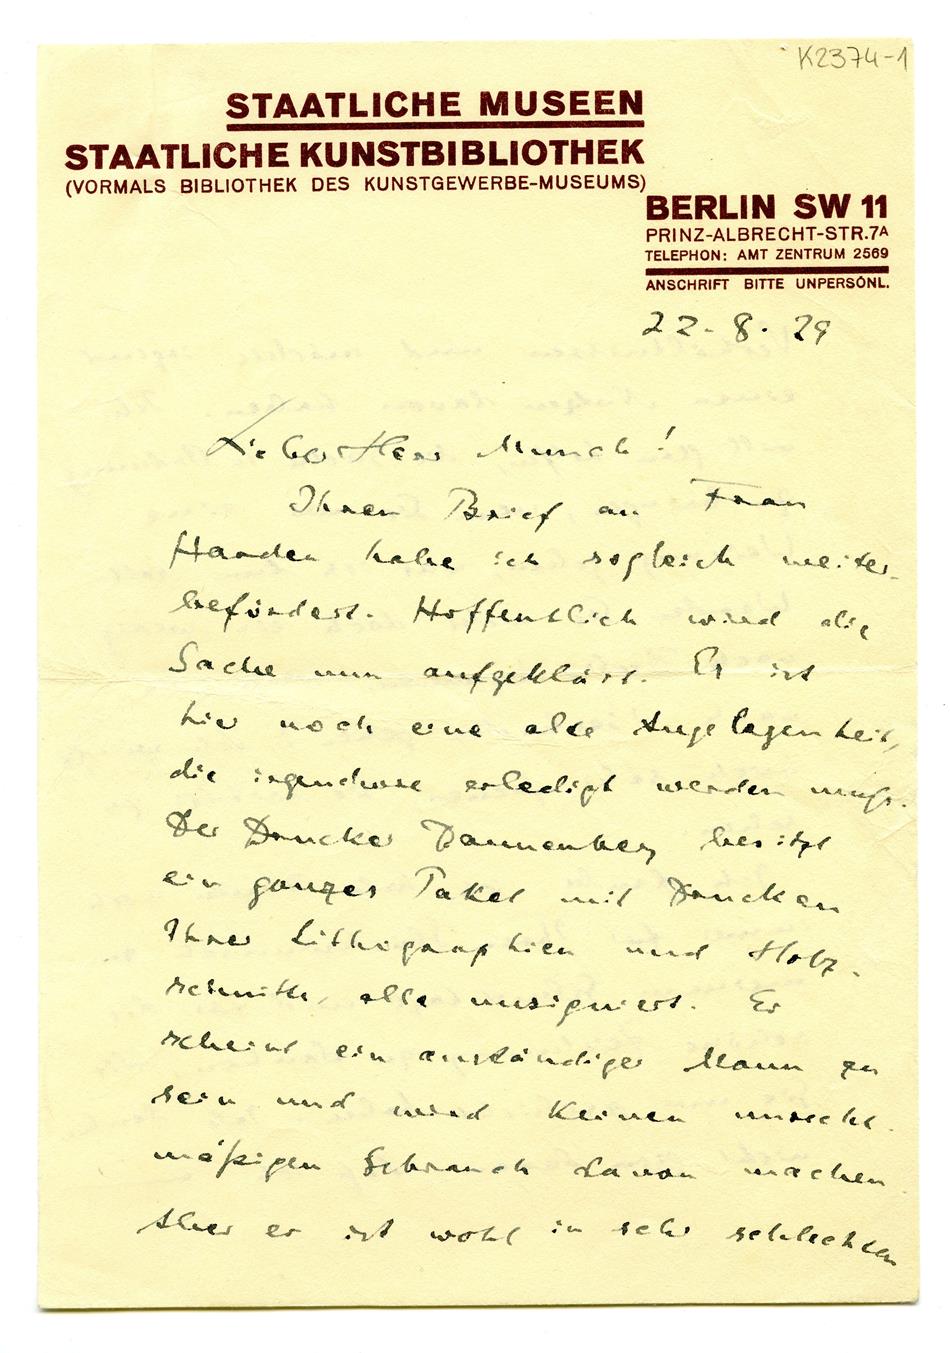 K2374-1
STAATLICHE MUSEEN
STAATLICHE KUNSTBIBLIOTHEK
(VORMALS BIBLIOTHEK DES KUNSTGEWERBE-MUSEUMS)
BERLIN SW 11
PRINZ-ALBRECHT-STR.7A
TELEPHON: AMT ZENTRUM 2569
ANSCHRIFT BITTE UNPERSÖNL.
22.8.29
Lieber Herr Munch!
Ihren Brief an Frau
Harden habe ich sogleich weiter-
befördert. Hoffentlich wird die
Sache nun aufgeklärt. Es ist
hier noch eine alte Angelegenheit,
die irgendwie erledigt werden muss.
Der Drucker Dannenberg besitzt
ein ganzes Paket mit Drucken
Ihrer Lithographien und Holz-
schnitte, alle unsigniert. Er
scheint ein anständiger Mann zu
sein und wird keinen unrecht-
mäßigen Gebrauch davon machen
Aber er ist wohl in sehr schlechten